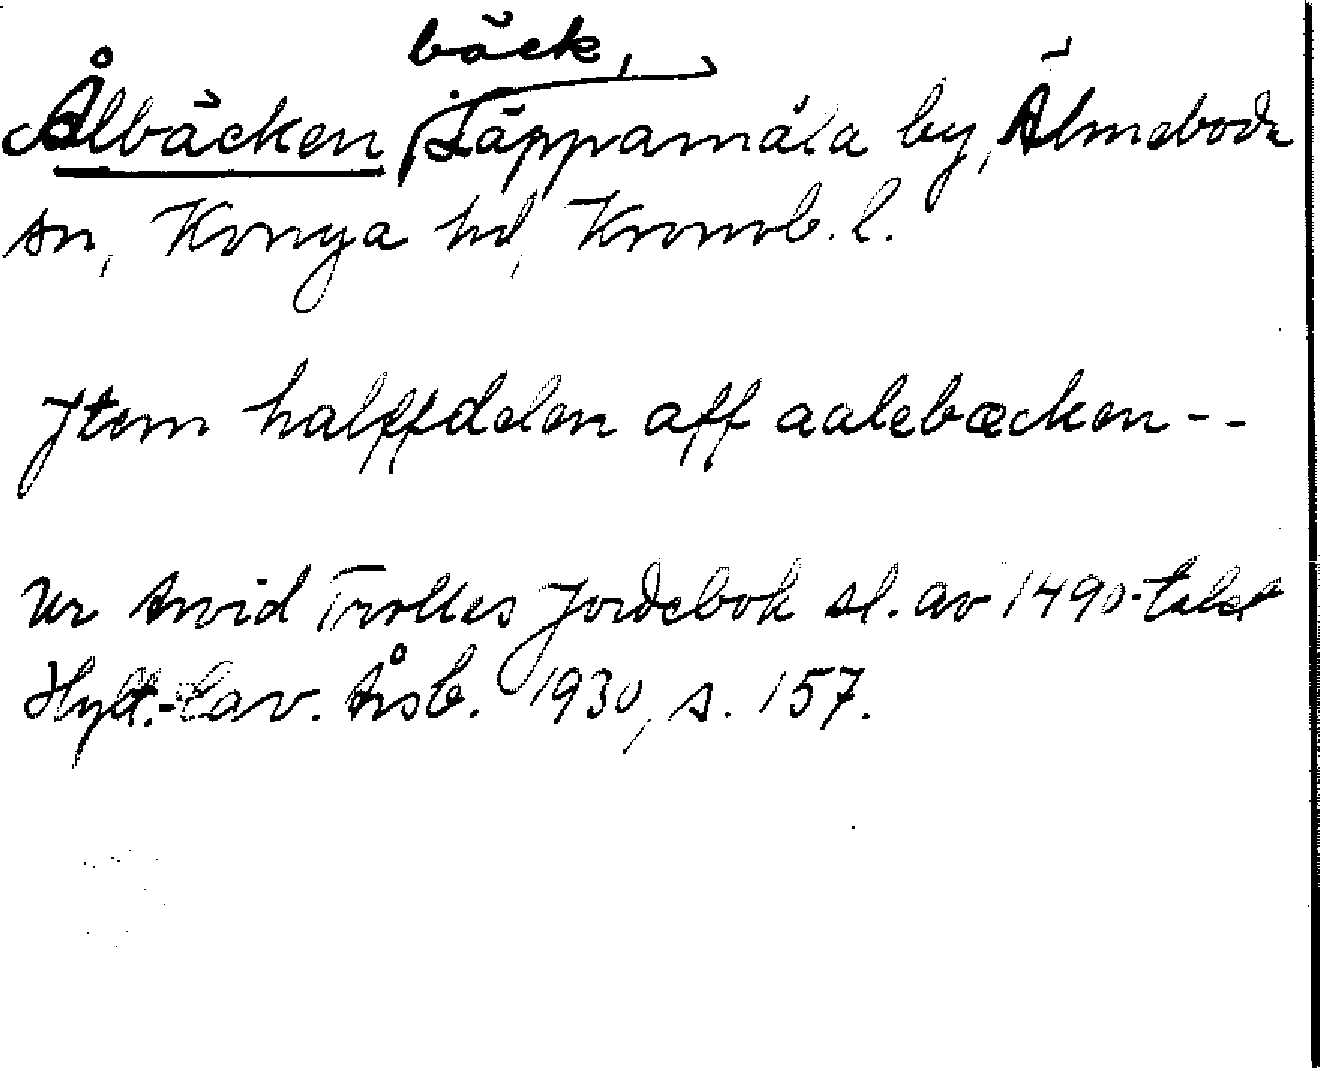 bäck,
Ålbäcken i Täppamåla by, Älmeboda
sn, Konga hd, Kronob. l.
Jtem halffdelen aff aalebæcken - -
Ur Arvid Trolles Jordebok sl. av 1490-talet
Hylt.-Cav. Årsb. 1930, s. 157.